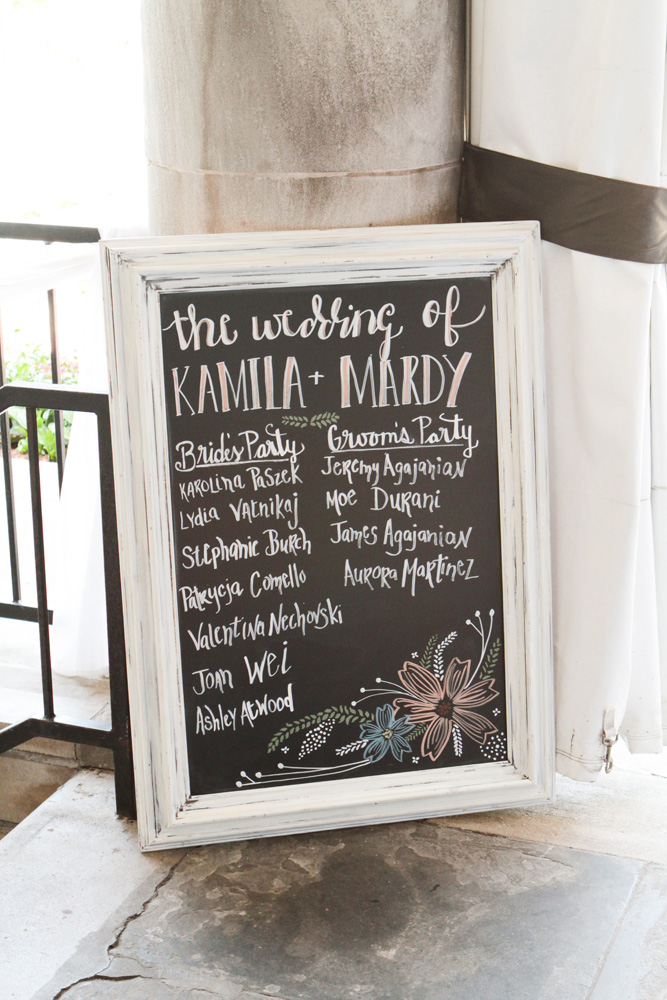 the wedding of
KAMILA + MARDY
Bride's Party
KAROLINA PASZEK
LYDIA VATNIKAJ
STEPHANIE BURCH
PATRYCJA COMELLO
VALENTINA NECHOVSKI
JOAN WEI
ASHLEY ATWOOD
Groom's Party
JEREMY AGAJANIAN
MOE DURANI
JAMES AGAJANIAN
AURORA MARTINEZ